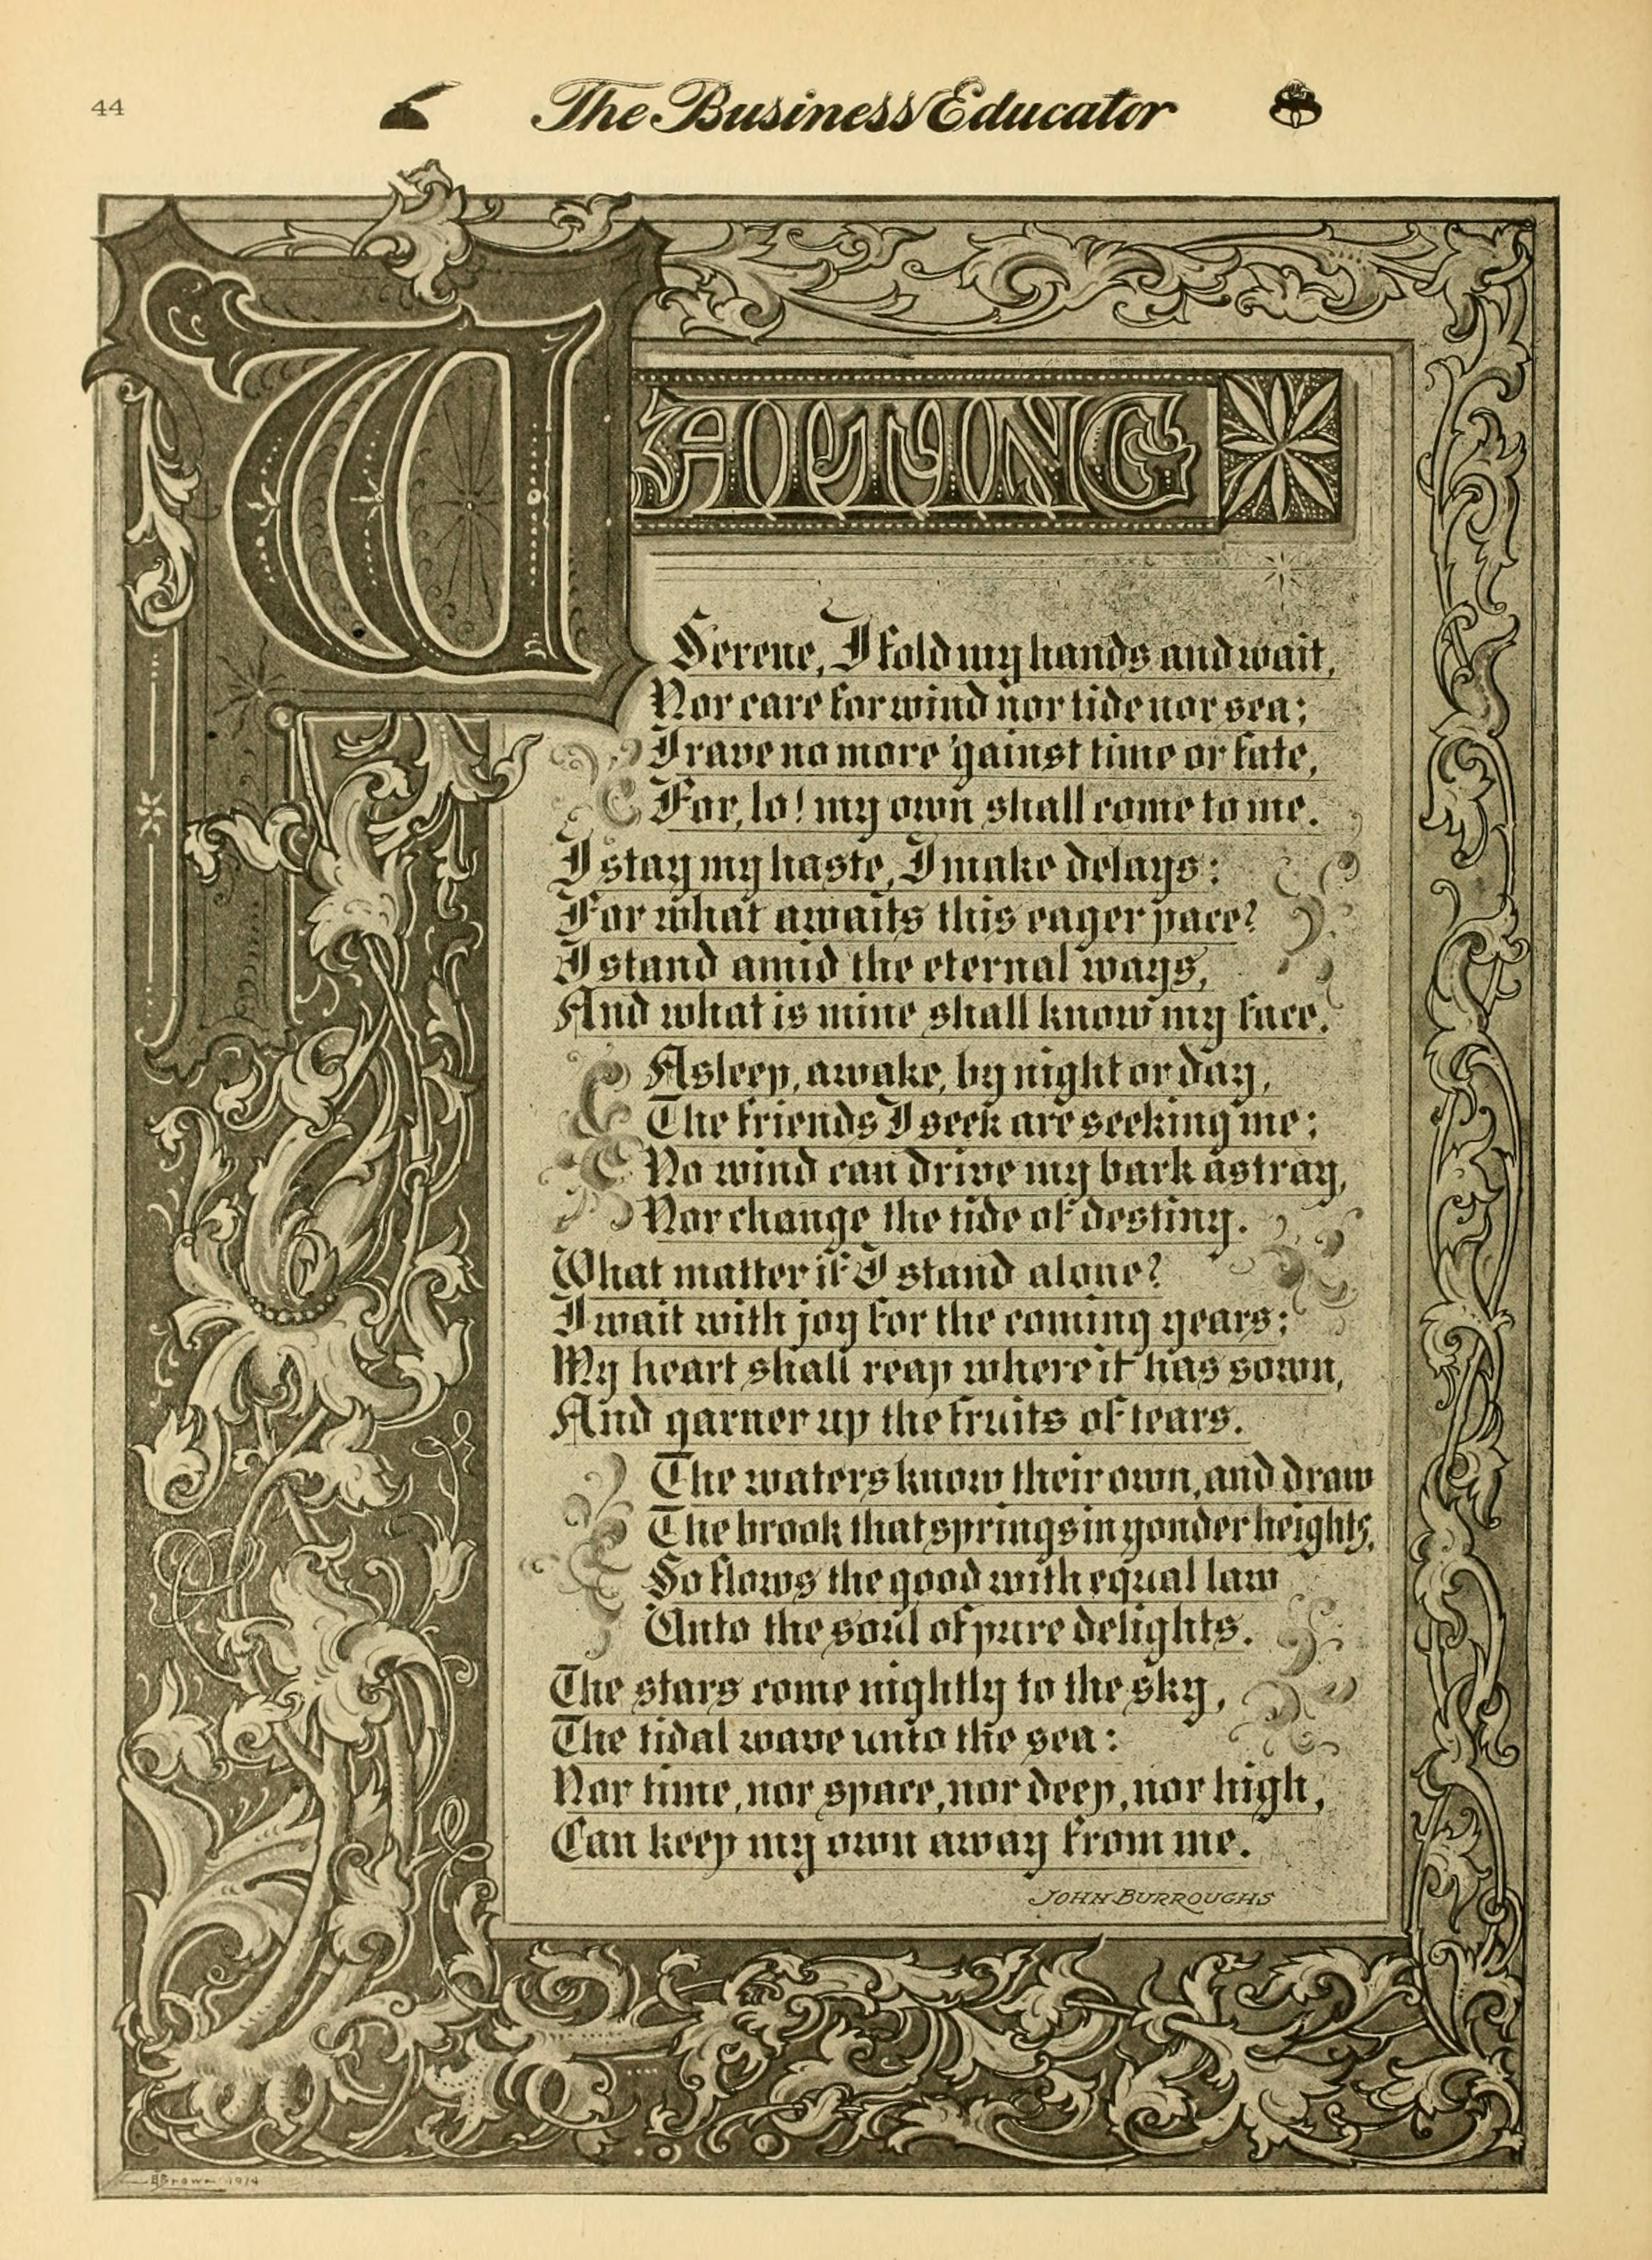 44
The Business Educator
WAITING
Serene, I fold my hands and wait,
Nor care for wind nor tide nor sea;
I rave no more 'gainst time or fate,
For, lo! my own shall come to me.
I stay my haste, I make delays:
For what awaits this eager pace?
I stand amid the eternal ways,
And what is mine shall know my face.
Asleep, awake, by night or day,
The friends I seek are seeking me;
No wind can drive my bark astray,
Nor change the tide of destiny.
What matter if I stand alone?
I wait with joy for the coming years;
My heart shall reap where it has sown,
And garner up the fruits of tears.
The waters know their own, and draw
The brook that springs in yonder heights,
So flows the good with equal law
Unto the soul of pure delights.
The stars come nightly to the sky,
The tidal wave unto the sea:
Nor time, nor space, nor deep, nor high,
Can keep my own away from me.
JOHN BURROUGHS
Brown 1914